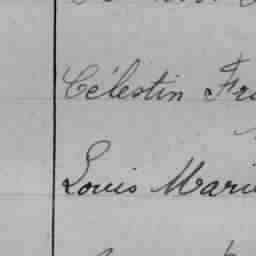 Célestin Fr
Louis Marie